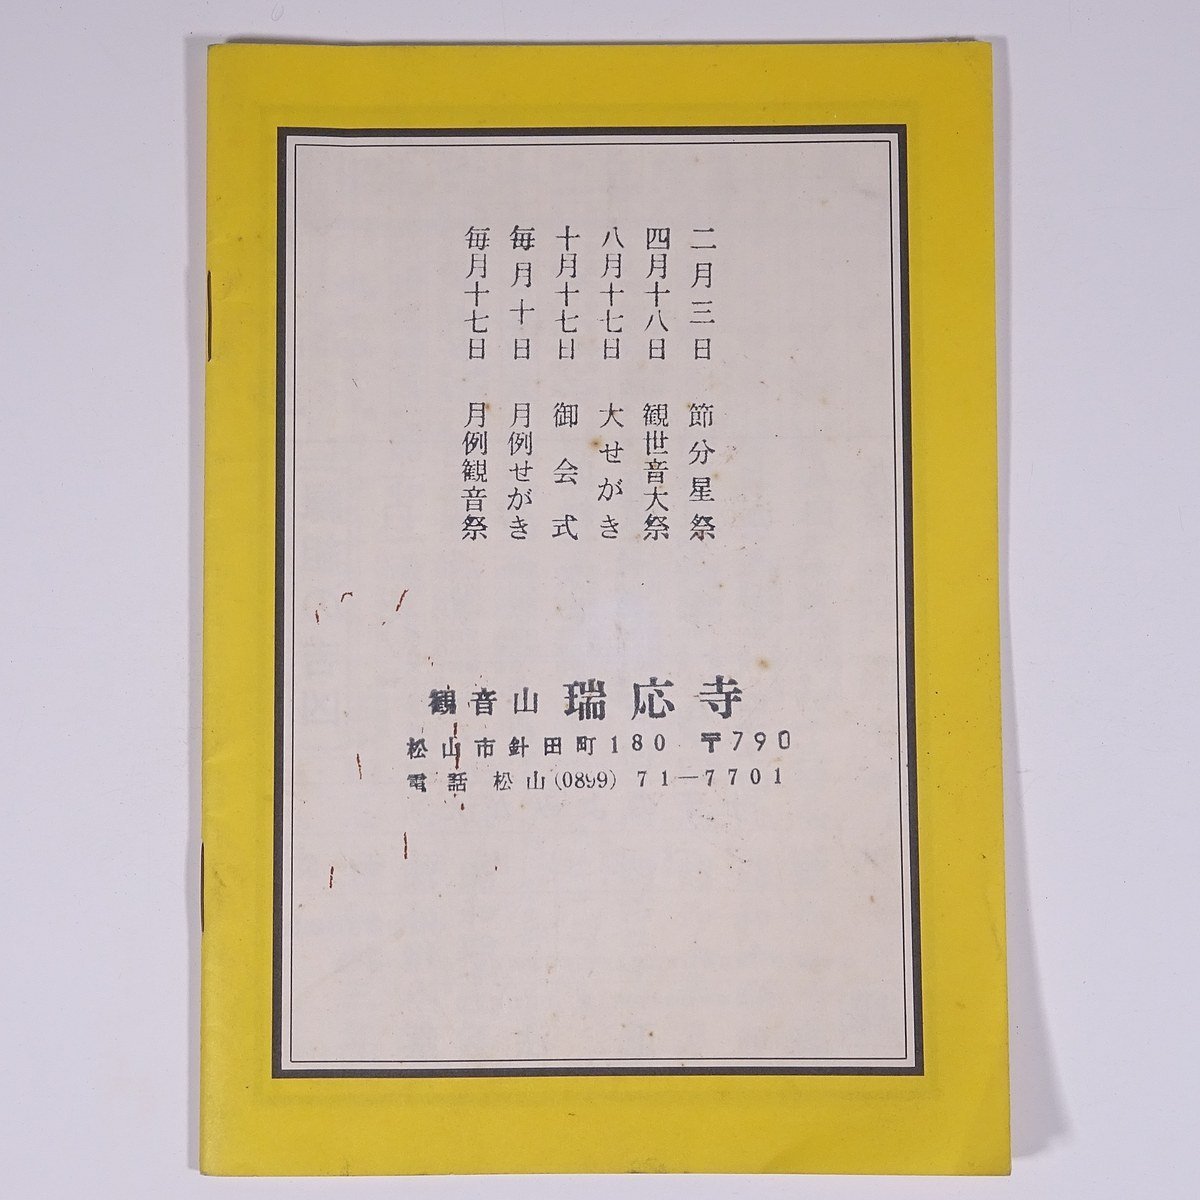 二月三日 節分星祭
四月十八日 観世音大祭
八月十七日 大せがき
十月十七日 御会式
毎月十日 月例せがき
毎月十七日 月例観音祭
観音山 瑞応寺
松山市針田町180 〒790
電話 松山(0899)71―7701